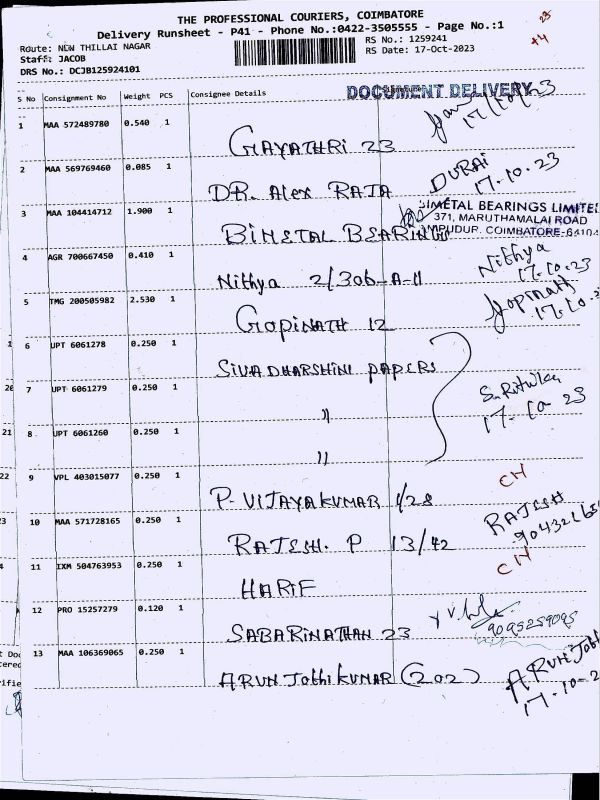 THE PROFESSIONAL COURIERS, COIMBATORE
Delivery Runsheet - P41 - Phone No.:0422-3505555 - Page No.:1
Route: NEW THILLAI NAGAR
Staff: JACOB
DRS No.: DCJB125924101
RS No.: 1259241
RS Date: 17-Oct-2023
23
+4
S No Consignment No Weight PCS Consignee Details
DOCUMENT DELIVERY
1 MAA 572489780 0.540 1 GAYATHRI 23 17/10/23
2 MAA 569769460 0.085 1 DR. Alex RAJA DURAI 17.10.23
3 MAA 104414712 1.900 1 BIMETAL BEARING
BIMETAL BEARINGS LIMITED
371, MARUTHAMALAI ROAD
COIMBATORE-6410
4 AGR 700667450 0.410 1 Nithya 2/306-A-11 Nithya 17.10.23
5 TMG 200505982 2.530 1 GOPINATH 12 Gopinath 17.10.2
6 UPT 6061278 0.250 1 SIVADHARSHINI PAPERS
7 UPT 6061279 0.250 1 〃 17-10-23
8 UPT 6061260 0.250 1 〃
9 VPL 403015077 0.250 1 P. VIJAYAKUMAR 1/28 CH
10 MAA 571728165 0.250 1 RAJESH. P 13/42 RAJESH
11 IXM 504763953 0.250 1 HARIF CH
12 PRO 15257279 0.120 1 SABARINATHAN 23 9095259095
13 MAA 106369065 0.250 1 ARUN Jothi KUMAR (202) ARUN Joth
17-10-2